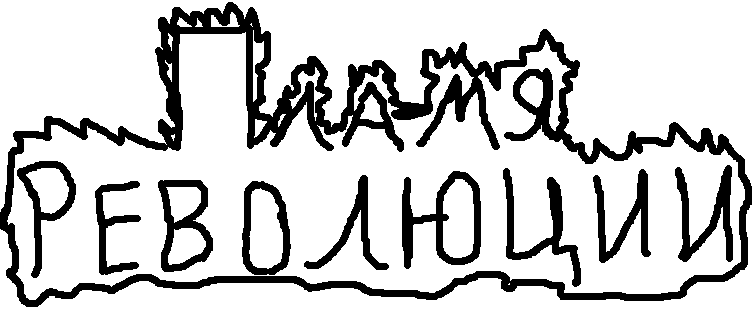 Пламя
РЕВОЛЮЦИИ